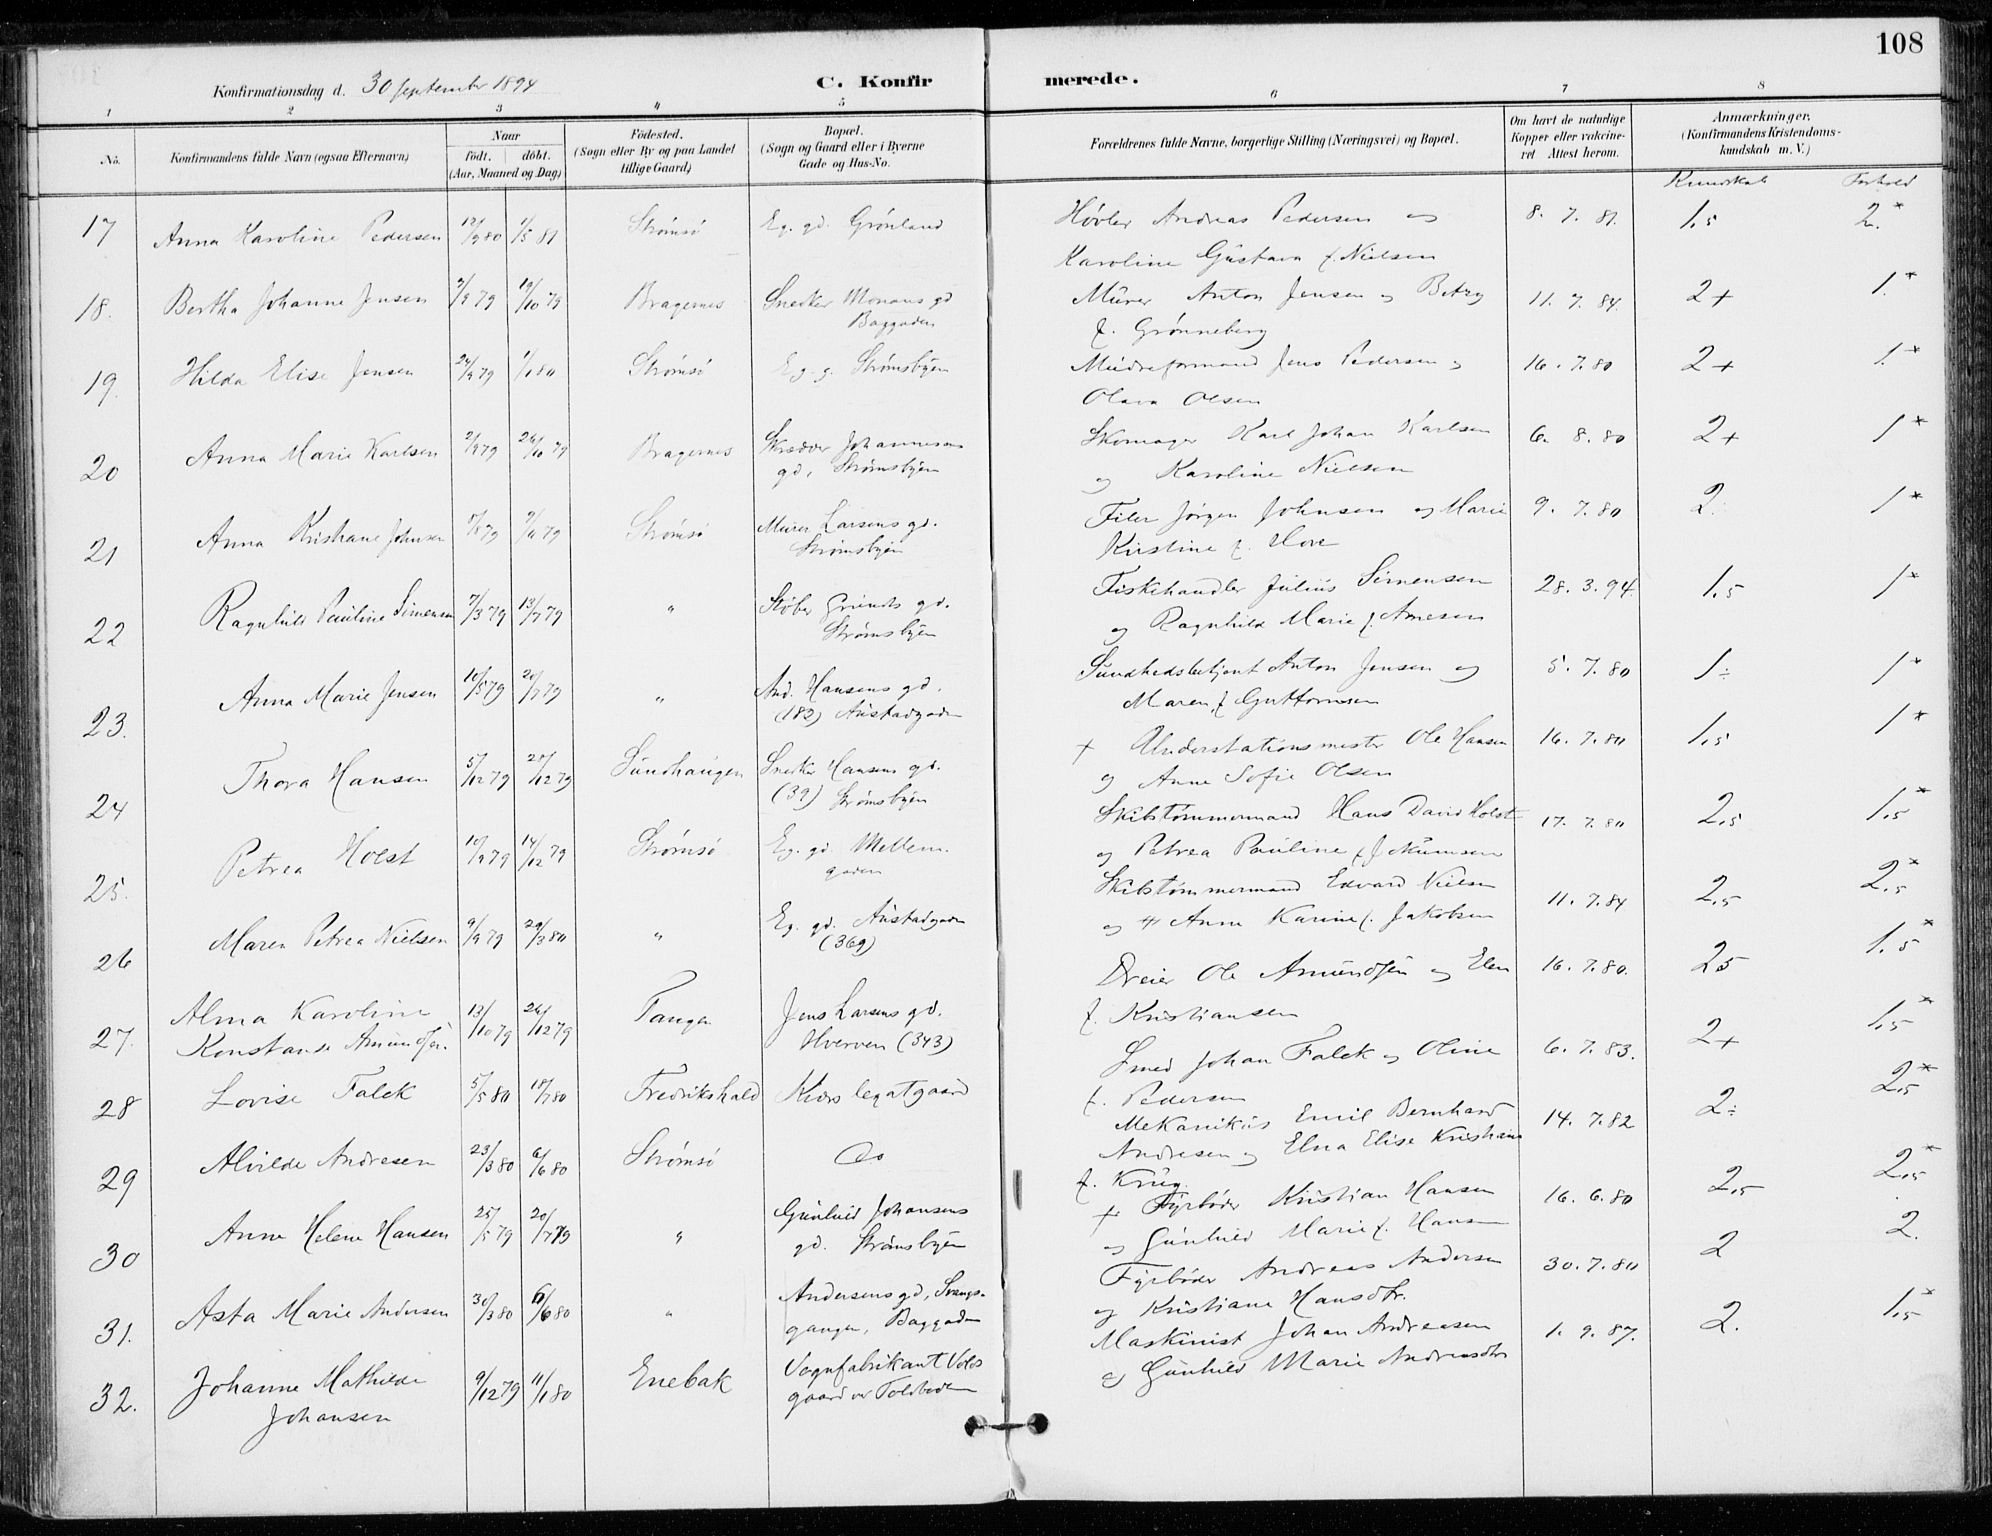 108
Konfirmationsdag d. 30 september 1894
C. Konfirmerede.
1 2 3 4 5 6 7 8
No.
Konfirmandens fulde Navn (ogsaa Efternavn)
Naar
födt. döbt.
(Aar, Maaned og Dag)
Födested.
(Sogn eller By og paa Landet
tillige Gaard)
Bopæl.
(Sogn og Gaard eller i Byerne
Gade og Hus-No.
Forældrenes fulde Navne, borgerlige Stilling (Næringsvei) og Bopæl.
Om havt de naturlige
Kopper eller vakcine-
ret Attest herom.
Anmærkninger,
(Konfirmandens Kristendoms-
kundskab m. V.)
Kundskab Forhold
17 Anna Karoline Pedersen 12/9 80 1/5 81 Strømsø Eg. gd. Grønland Høvler Andreas Pedersen og 8. 7. 81. 1,5 2.*
Karoline Gustava f. Nielsen
18. Bertha Johanne Jensen 2/9 79 19/10 79 Bragernes Snedker Monans gd Murer Anton Jensen og Betzy 11. 7. 84. 2+ 1.*
Baggaden f. Grønneberg
19. Hilda Elise Jensen 24/9 79 1/1 80 Strømsø Eg. g. Strømsbyen Mudreformand Jens Pedersen og 16. 7. 80 2+ 1.*
Olava Olsen
20 Anna Marie Karlsen 2/9 79 26/10 79 Bragernes Skræder Johannesens Skomager Karl Johan Karlsen 6. 8. 80 2+ 1*
gd. Strømsbyen og Karoline Nielsen
21 Anna Kristiane Johnsen 7/8 79 9/11 79 Strømsø Murer Larsens gd. Filer Jørgen Johnsen og Marie 9. 7. 80 2. 1*
Strømsbyen Kirstine f. Hove
22 Ragnhild Pauline Simensen 7/3 79 13/7 79 " Støber Grunds gd. Fiskehandler Julius Simensen 28. 3. 94 1,5 1*
Strømsbyen og Ragnhild Marie f. Arnesen
23. Anna Marie Jensen 10/5 79 20/7 79 " And. Hansens gd. Sundhedsbetjent Anton Jensen og 5. 7. 80 1÷ 1*
(182) Austadgaden Maren f Guttormsen
24 Thora Hansen 5/12 79 28/12 79 Sundhaugen Snedker Hansens gd. + Understationsmester Ole Hansen 16. 7. 80 1,5 1*
(39) Strømsbyen og Anne Sofie Olsen
25. Petrea Holst 10/9 79 14/12 79 Strømsø Eg. gd. Mellem- Skibstømmermand Hans David Holst 17. 7. 80 2,5 1,5*
gaden og Petrea Pauline f.
26 Maren Petrea Nielsen 9/9 79 29/3 80 " Eg. gd. Austadgaden Skibstømmermand Edvard Nielsen 11. 7. 84 2,5 2,5*
(369) og Anne Karine f. Jakobsen
27. Alma Karoline 13/10 79 26/12 79 Tangen Jens Larsens gd. Dreier Ole Amundsen og Elen 16. 7. 80. 25 1.5*
Konstanse Amundsen. Hverven (343) f. Kristiansen
28 Lovise Falck 5/5 80 18/7 80 Fredrikshald Kiørs legatgaard Smed Johan Falck og Oline 6. 7. 83. 2+ 1,5*
f. Pedersen
29 Alvilde Andresen 23/3 80 6/6 80 Strømsø Do Mekanikus Emil Bernhard 14. 7. 82 2÷ 2,5*
Andresen og Elna Elise Kristiane
f. Krüg.
30 Anne Helene Hansen 25/5 79 20/7 79 " Gunhild Johansens + Fyrbøder Kristian Hansen 16. 6. 80 2,5 2,5*
gd. Strømsbyen og Gunhild Marie f. Hansen
31. Asta Marie Andersen 30/3 80 6/6 80 " Andersens gd, Svangs- Fyrbøder Andreas Andersen 30. 7. 80 2 2.
gangen, Baggaden og Kristiane Hansdtr.
32. Johanne Mathilde 9/12 79 11/1 80 Enebak Vognfabrikant Vols Maskinist Johan Andreasen 1. 9. 87. 2. 1,5*
Johansen gaard ve Toldboden og Gunhild Marie Andreasdtr